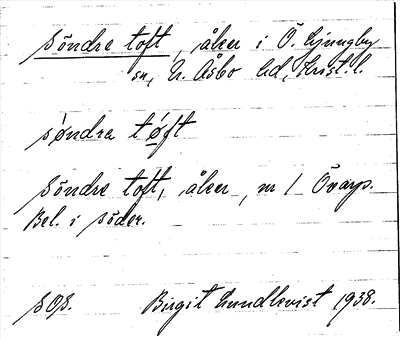 Söndre toft, åker i Ö. Ljungby
sn, N. Åsbo hd, Krist. l.
söndra tøft
Söndre toft, åker, nr 1 Övarp.
Bel. i söder.
SOS. Birgit Lundkvist 1938.